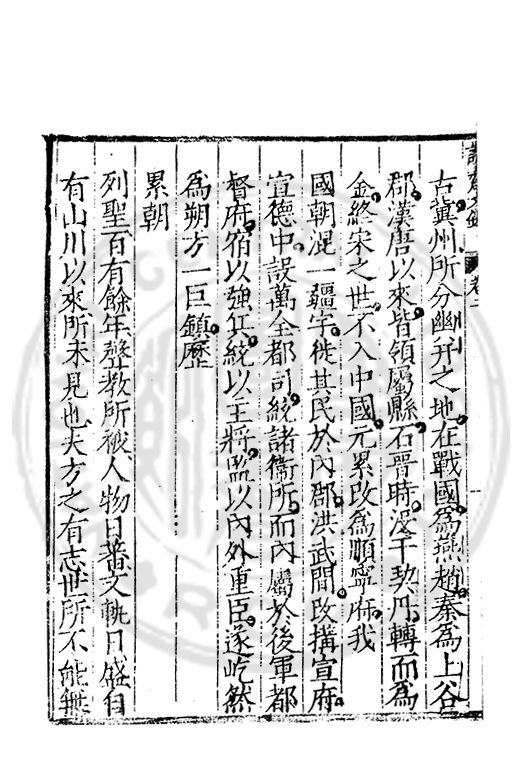 古冀州所分幽并之地在戰國為燕趙秦為上谷
郡漢唐以來皆領屬縣石晉時淩于契丹轉而為
金終宋之世不入中國元累改為順寧府我
國朝混一疆宇徙其民於內郡洪武間改搆宣府
宣德中設萬全都司統諸衛所而內屬於後軍都
督府宿以強兵統以主將監以內外重臣遂屹然
為朔方一巨鎮歷
累朝
列聖百有餘年聲教所被人物日蕃文軌日盛自
有山川以來所未見也夫方之有志世所不能無